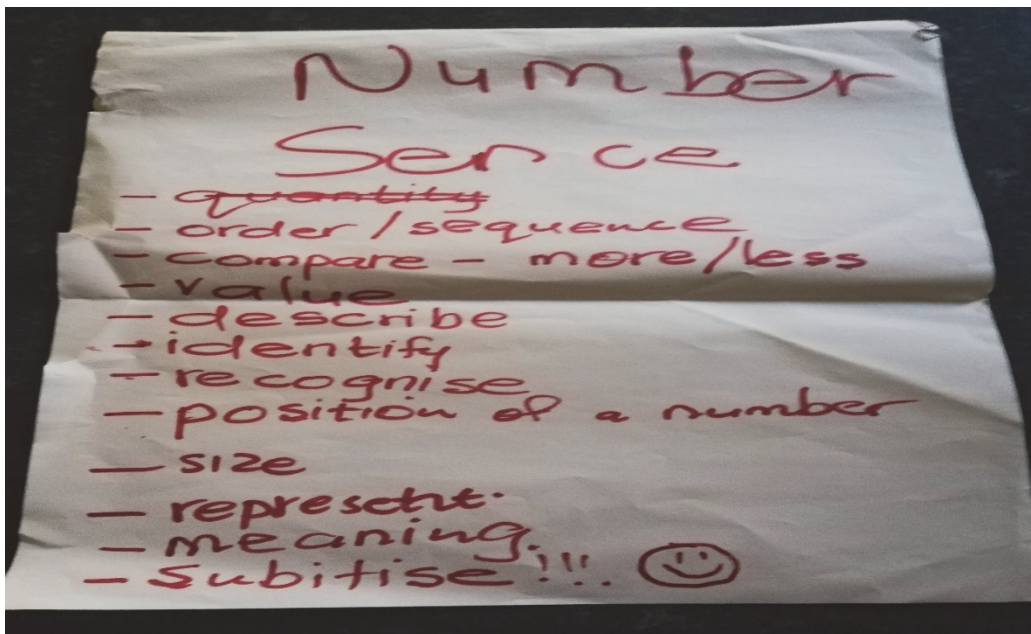 Number
Sence
- quantity
- order/sequence
- compare - more/less
- value
- describe
- identify
- recognise
- position of a number
- size
- represent.
- meaning.
- subitise!!!. ☺